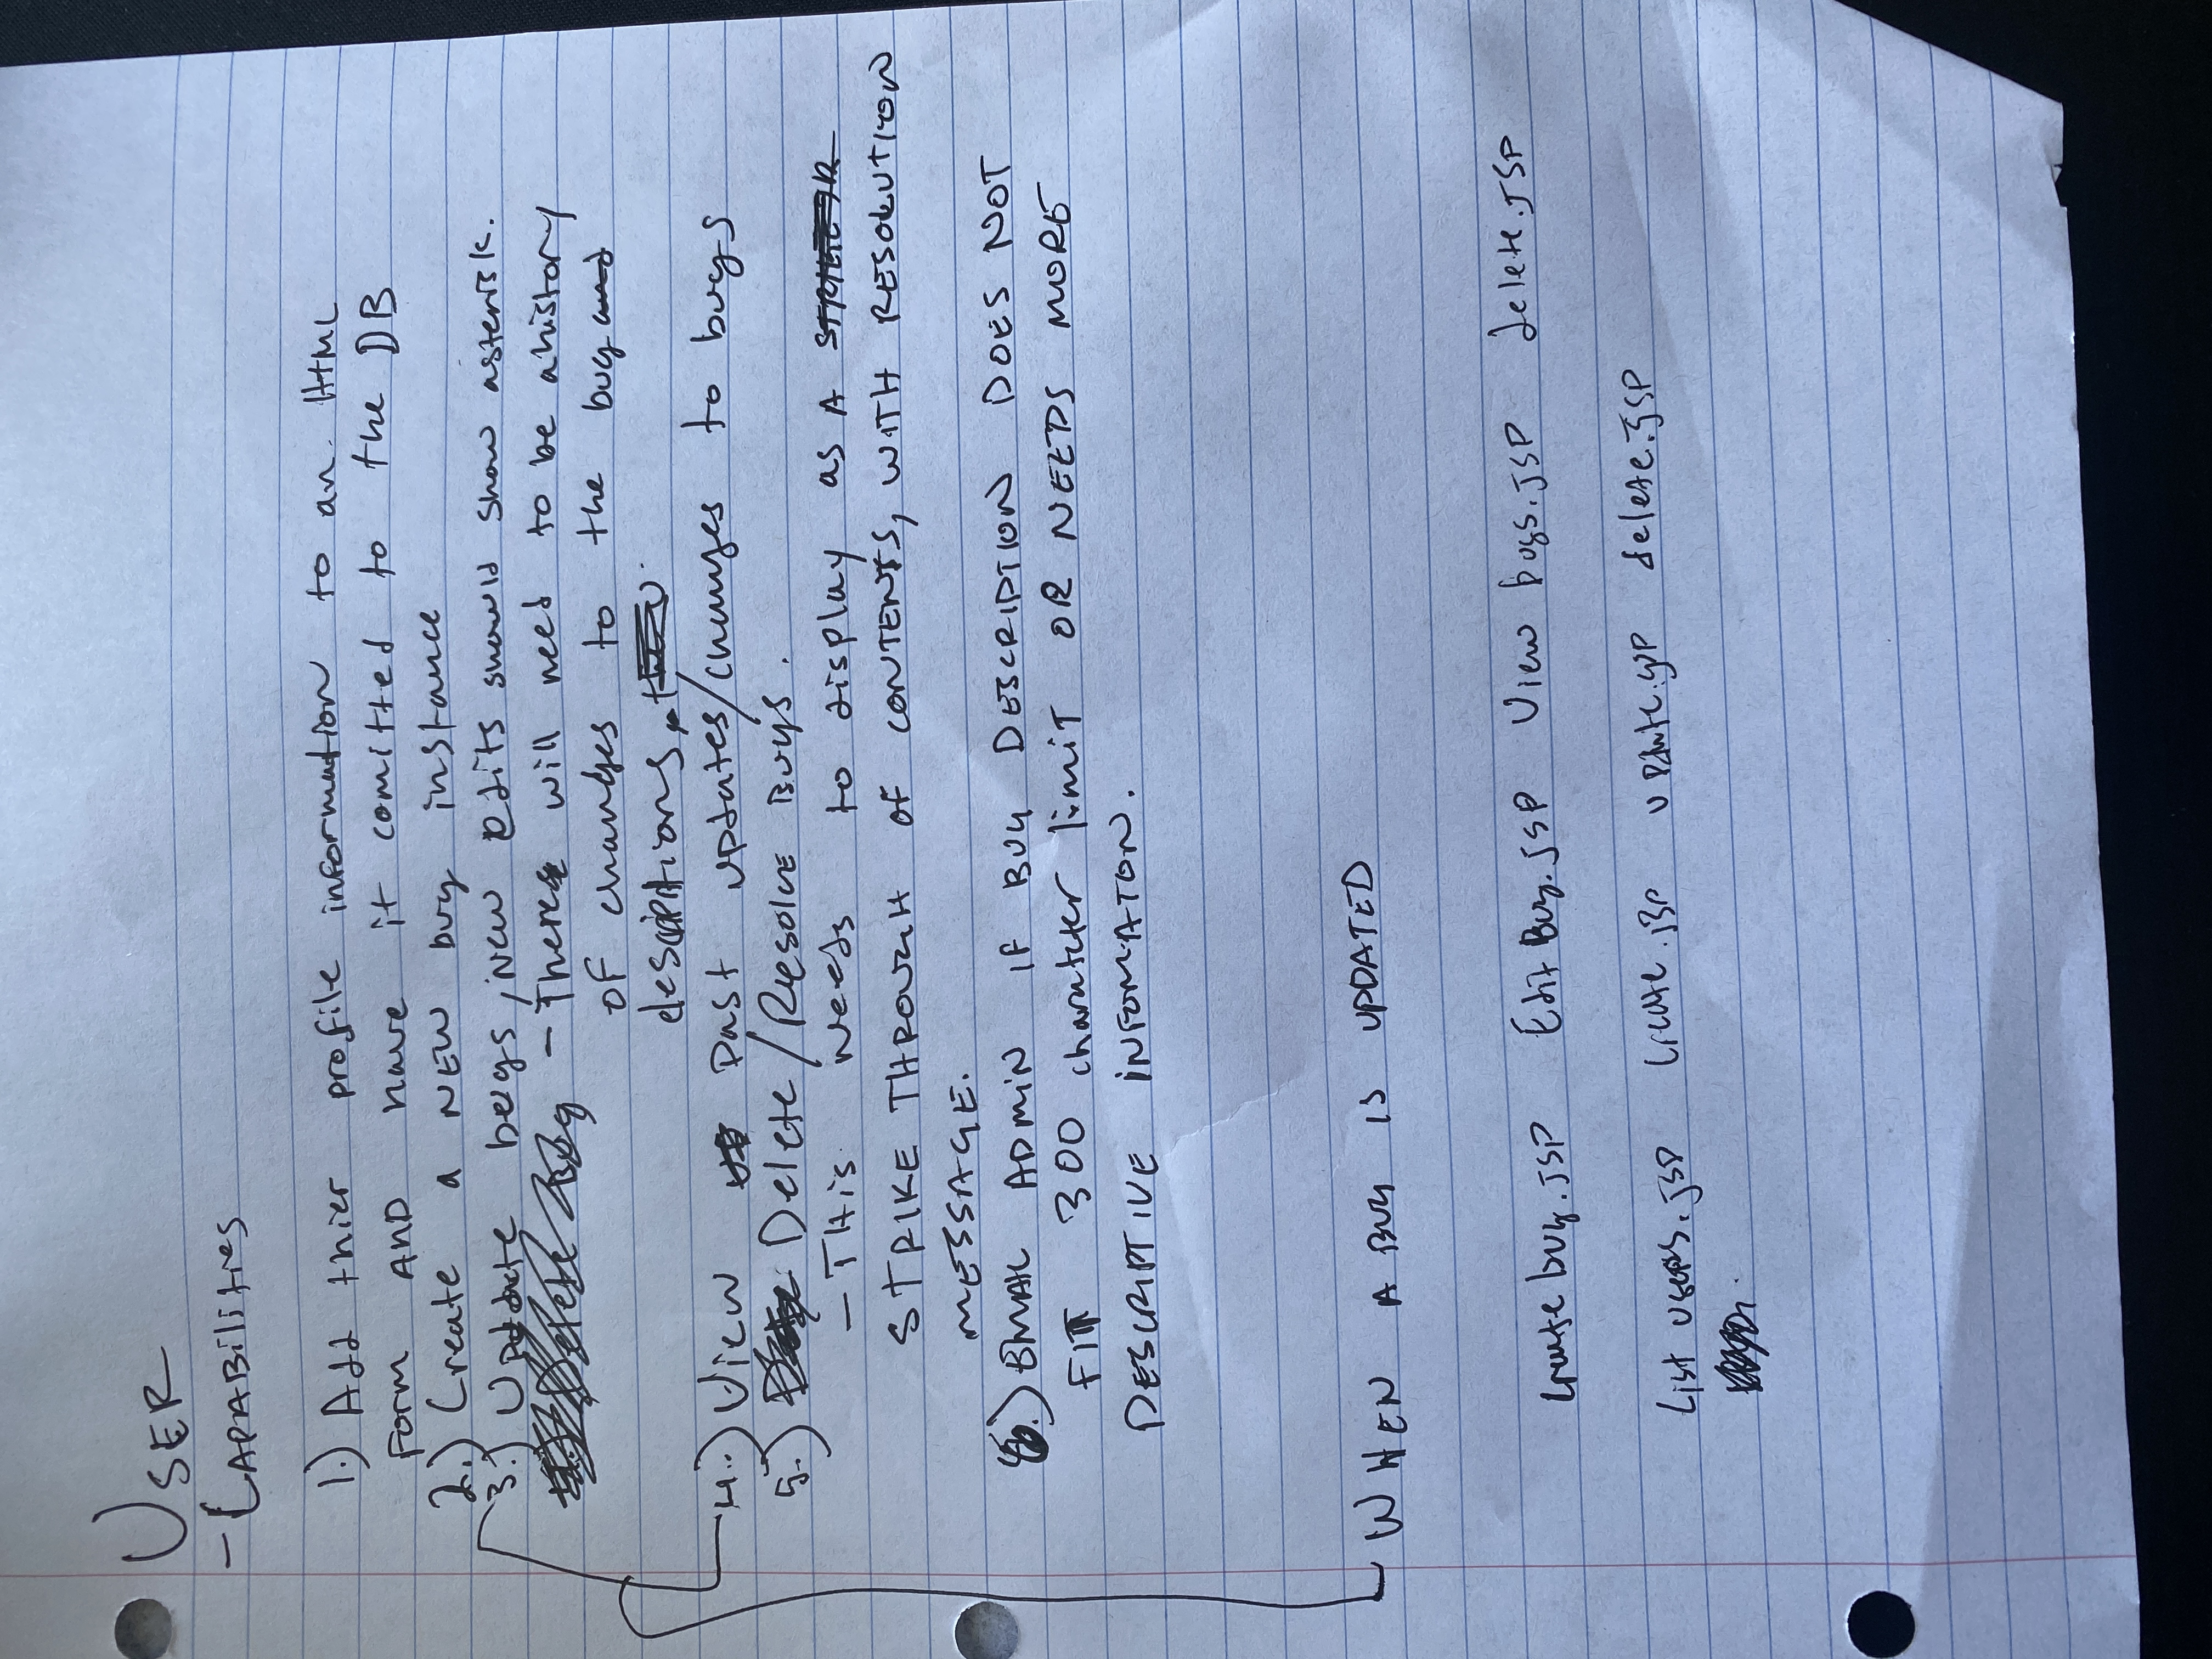 USER
- CAPABilities
1.) Add thier profile information to an HTML
Form AND have it comitted to the DB
2.) Create a NEW bug instance
3.) Update bugs, New edits should show asterisk.
Delete Bug - There will need to be a history
of changes to the bug and
descriptions.
4.) View past updates/changes to bugs
5.) Delete/Resolve Bugs.
- This needs to display as A
STRIKE THROUGH OF CONTENTS, WITH RESOLUTION
MESSAGE.
6.) EMAIL ADMIN IF BUG DESCRIPTION DOES NOT
FIT 300 charatcter limit OR NEEDS MORE
DESCRIPTIVE INFOMATON.
WHEN A BUG IS UPDATED
Create bug.JSP Edit Bug.jsp View bugs.JSP delete.JSP
List users.jsp Create.jsp update.jsp delete.jsp